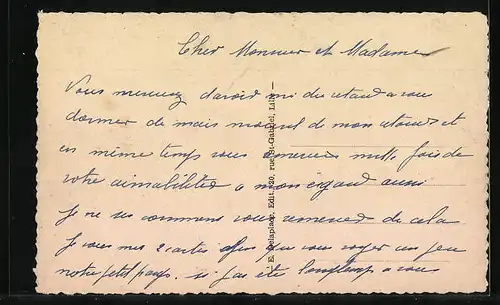 Cher Monsieur et Madame
Vous
donner de mon retour et
en même temps vous remercier mille fois de
votre aimabilités a mon égard aussi
Je ne sais comment vous remercier de cela
Je vous mes 2 cartes afin que vous voyer un peu
notre petit pays. si j'ai étés longtemps a vous
E. Delaplace, Edit. 20, rue St-Gabriel, Lille —